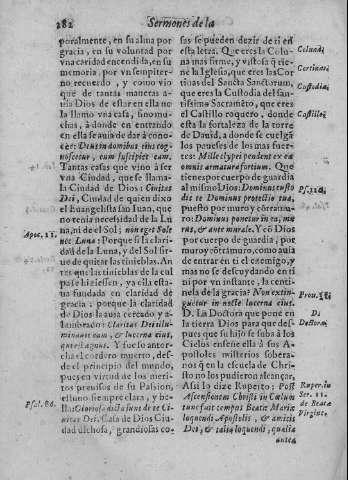 282 Sermones de la
poralmente, en su alma por
gracia, en su voluntad por
vna caridad encendida, en su
memoria, por vn sempiter-
no recuerdo, y como vio
que de tantas maneras
Dios de estar en ella no
la llamo vna casa, sino mu-
chas, á donde en entrando
en ella se auia de dar à cono-
cer: Deus in domibus eius cog-
noscetur, cum suscipiet eam.
Tantas casas que vino à ser
vna Ciudad, que se llama
la Ciudad de Dios: Ciuitas
Dei, Ciudad de quien dixo
el Euangelista san Iuan, que
no tenia necesidad de la Lu
na, ni de el Sol; non eget Sole
nec Luna: Porque si la clari-
dad de la Luna, y del Sol sir
ue de quitar las tinieblas. An
tes que las tinieblas de la cul
pa se hiziessen, ya ella esta-
ua fundada en claridad de
gracia: porque la claridad
de Dios la auia cercado y a-
lumbrado: Claritas Dei illu-
minauit eam, & lucerna eius,
Y fue lo an-
tes el cordero muerto, des-
de el principio del mundo,
pues en virtud de los meri-
tos preuisos de su Passion,
ella luno siempre clara, y be-
lla: Gloriosa dicta sunt de te Ci-
uitas Dei. Casa de Dios Ciu
dad dichosa, grandiosas co-
sas se pueden dezir de ti en
esta letra. Que eres la Colu-
na mas firme, y vistosa que tie-
ne la Iglesia, que eres las Cor
tinas del Sancta Sanctorum,
que eres la Custodia del san-
tissimo Sacramẽto, que eres
el Castillo roquero, donde
esta la fortaleza de la torre
de Dauid, a donde se cuelgã
los paueses de los mas fuer-
tes: Mille clypei pendent ex ea
omnis armatura fortium. Que
tienes por cuerpo de guardia
al mismo Dios: Dominus custo
dit te Dominus protectio tua,
puesto por muro y cõtramu-
ro: Dominus ponetur in ea, mu
rus, & ante murale. Y cõ Dios
por cuerpo de guardia, por
muro y cõtramuro, como auia
de entrar en ti el enemigo, y
mas no se descuydando en ti
ni por vn instante, la centi-
nela de la gracia? Non extin-
guetur in nocte lucerna eius.
D. La Doctora que pone en
la tierra Dios para que des-
pues que su hijo se suba à los
Cielos enseñe ella à sus A-
postoles misterios sobera-
nos q̃ en la escuela de Chris-
to no los pudieron alcançar,
Assi lo dize Ruperto; Post
Ascensionem Christi in Cœlum
tunc fuit tempus Beatæ Mariæ
loquendi Apostolis, & amicis
Dei, & talia loquendi, qualia
antea
Apoc. 21.
Psal. 86.
Coluna
Cortinas
Custodia
Castillo
Ps. 120.
Prou. 31.
Di
Doctora.
Ruper. in
Ser. 11.
de Beata
Virgine.